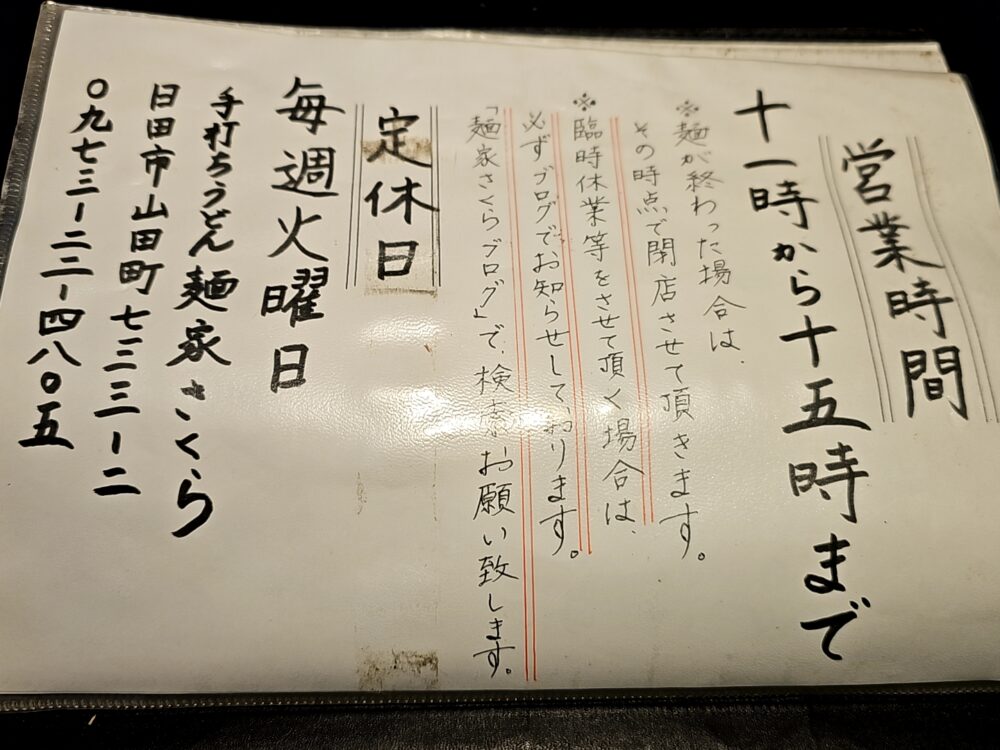 営業時間
十一時から十五時まで
※麺が終わった場合は、
その時点で閉店させて頂きます。
※臨時休業等をさせて頂く場合は、
必ずブログでお知らせしております。
「麺家さくらブログ」で、検索、お願い致します。
定休日
毎週火曜日
手打ちうどん麺家さくら
日田市山田町七三三ー二
〇九七三ー二二ー四八〇五